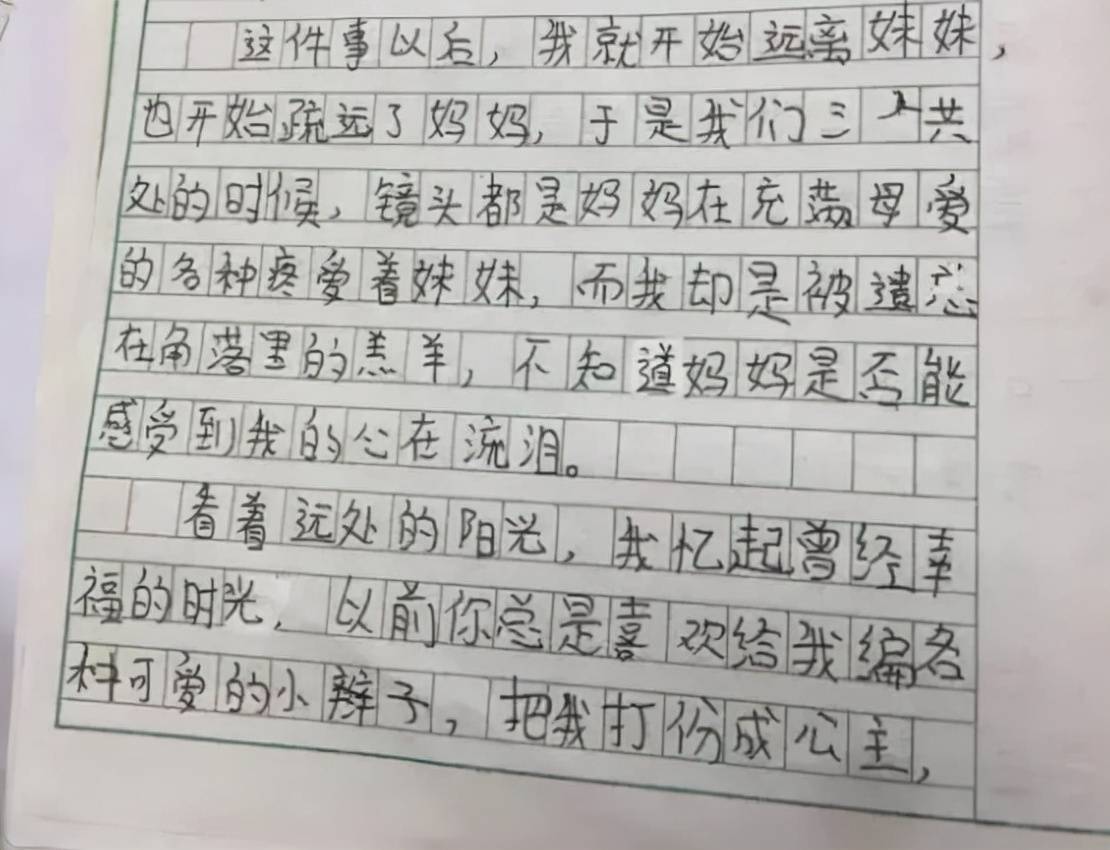 这件事以后，我就开始远离妹妹，
也开始疏远了妈妈，于是我们三个共
处的时候，镜头都是妈妈在充满母爱
的各种疼爱着妹妹，而我却是被遗忘
在角落里的羔羊，不知道妈妈是否能
感受到我的心在流泪。
看着远处的阳光，我忆起曾经幸
福的时光，以前你总是喜欢给我编各
种可爱的小辫子，把我打份成公主，